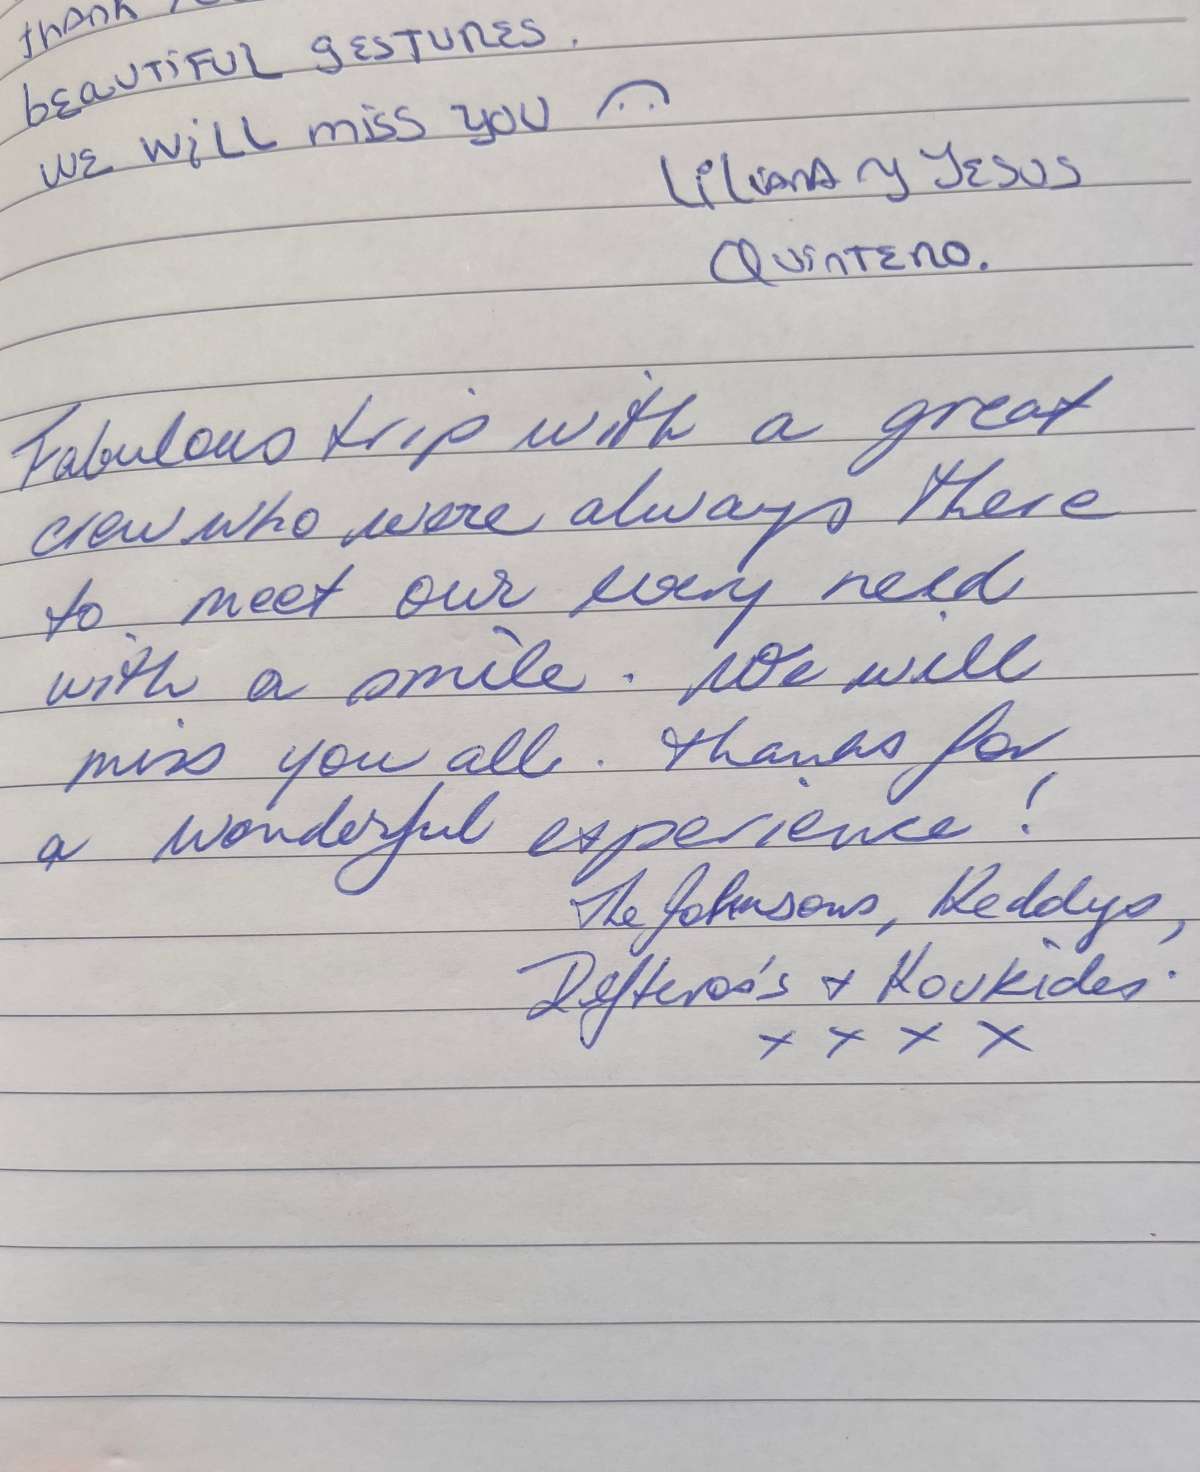 thank
bEAUTiFUL gESTURES.
WE WiLL miss you
LiLiana y JESUS
QuinTERO.
Fabulous trip with a great
crew who were always there
to meet our every need
with a smile. We will
miss you all. Thanks for
a wonderful experience!
The Johnsons, Reddys,
Defteros's + Koukides.
x x x x